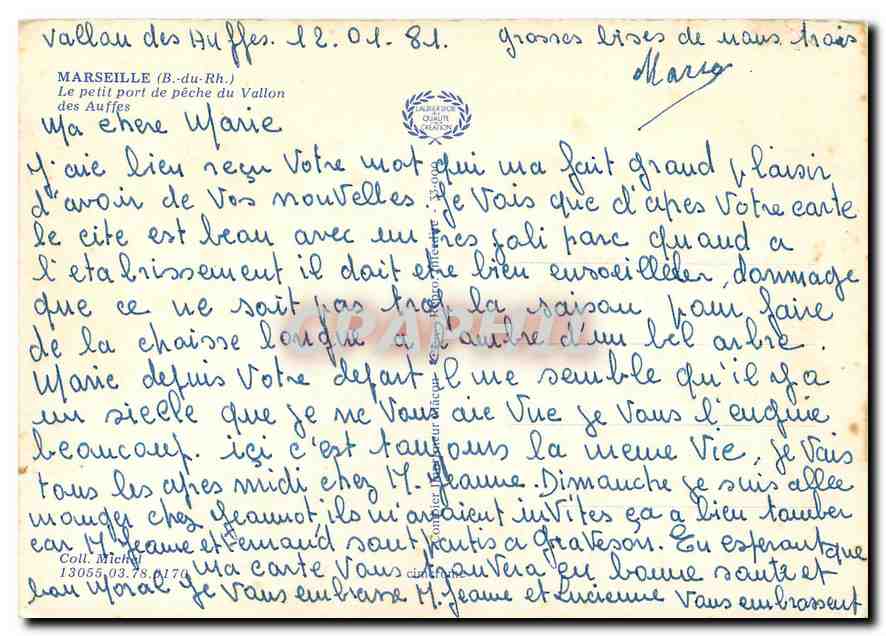 Vallon des Auffes. 12.01.81. grosses bises de nous trois
MARSEILLE (B.-du-Rh.)
Le petit port de pêche du Vallon
des Auffes
LAURIER D'OR
DE LA
QUALITÉ
CRÉATION
Ma chere Marie
J'aie bien reçu Votre mot qui ma fait grand plaisir
d'avoir de Vos nouvelles. Je Vois que d'apes Votre carte
le cite est beau avec un tres joli parc quand a
l'etabrissement il doit etre bien ensoeilleler, dommage
que ce ne soit pas trop la saison pour faire
de la chaisse longue a l'ombre d'un bel arbre.
Marie depuis Votre depart il me semble qu'il y a
un sielle que je ne Vous aie Vue je Vous l'
beaucoup. içi c'est toujours la meme Vie, je Vais
tous les apres midi chez M. Jeanne. Dimanche je suis allee
manger chez Jeannot, ils m'avaient invites ça a bien tomber
car M. Jeanne et Fernand sont partis a Graveson. En esperant que
ma carte Vous trouvera en bonne sante et
bon Moral Je Vous embrasse M. Jeanne et Lucienne Vous embrassent
Coll. Michel
13055.03.78.0170
combier imprimeur Mâcon
cimcrome
CPARHII